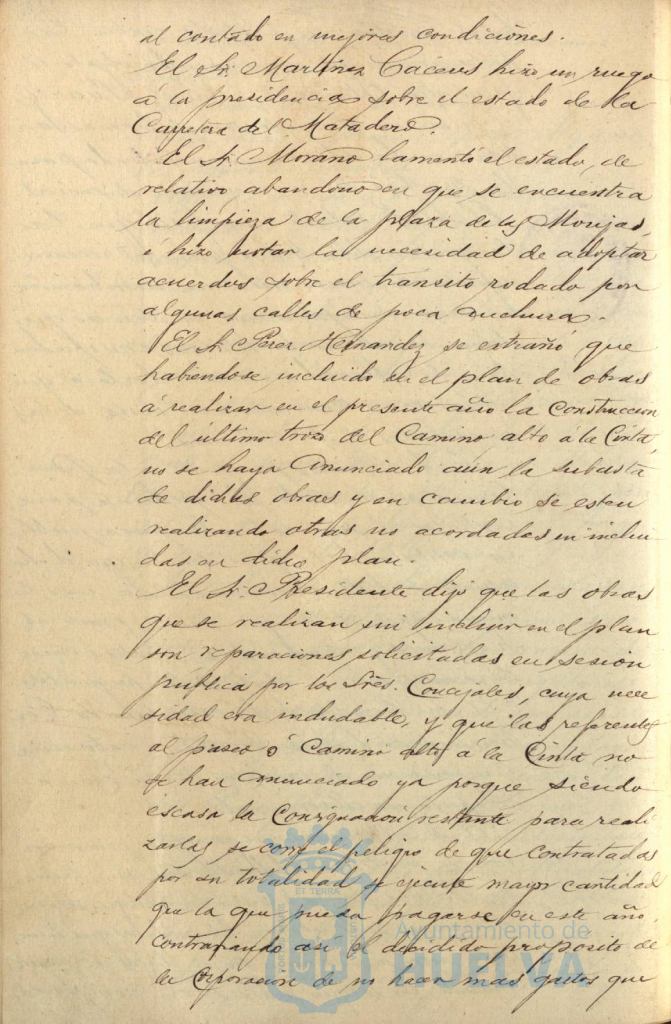 al contado en mejores condiciones.
El Sr. Martinez Cáceres hizo un ruego
á la presidencia sobre el estado de la
Carretera del Matadero.
El Sr. Morano lamentó el estado, de
relativo abandono en que se encuentra
la limpieza de la plaza de las Monjas,
é hizo notar la necesidad de adoptar
acuerdos sobre el transito rodado por
algunas calles de poca anchura.
El Sr. Perez Hernandez se extrañó que
habiendose incluido en el plan de obras
á realizar en el presente año la construccion
del último trozo del Camino alto á la Cinta,
no se haya anunciado aun la subasta
de dichas obras y en cambio se esten
realizando otras no acordadas ni inclui
das en dicho plan.
El Sr. Presidente dijo que las obras
que se realizan sin incluir en el plan
son reparaciones solicitadas en sesión
pública por los Sres. Concejales, cuya nece
sidad era indudable, y que las referentes
al paseo ó Camino alto á la Cinta no
se han anunciado ya porque siendo
escasa la Consignación restante para reali
zarlas se corre el peligro de que contratadas
por su totalidad se ejecute mayor cantidad
que la que pueda pagarse en este año,
contrariando asi el decidido proposito de
la Corporacion de no hacer mas gastos que
Ayuntamiento de
HUELVA